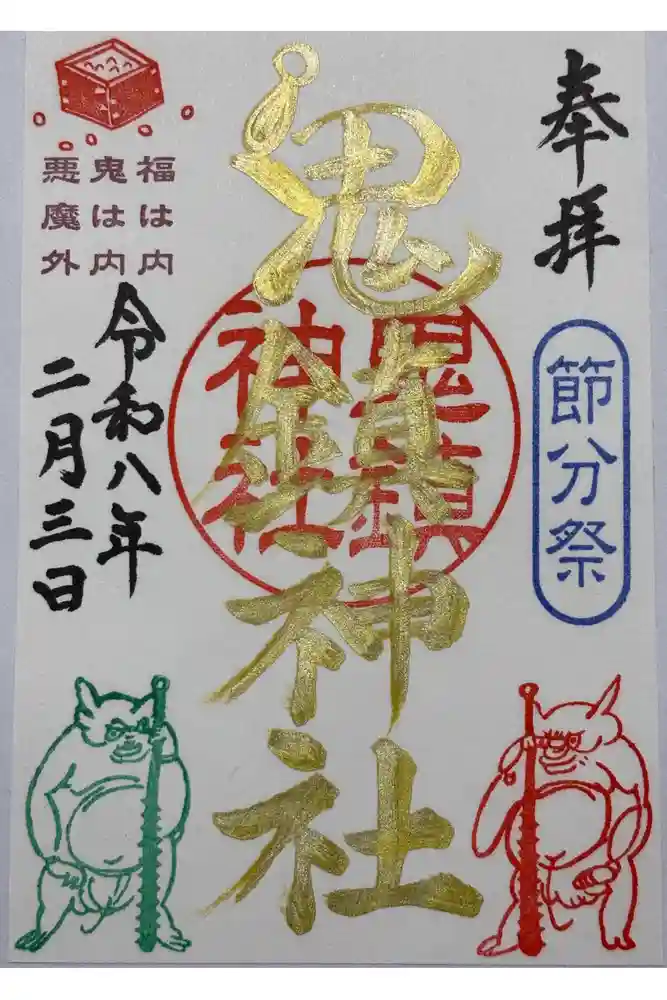 奉拝
節分祭
鬼鎮神社
鬼鎮
神社
福は内
鬼は内
悪魔外
令和八年
二月三日